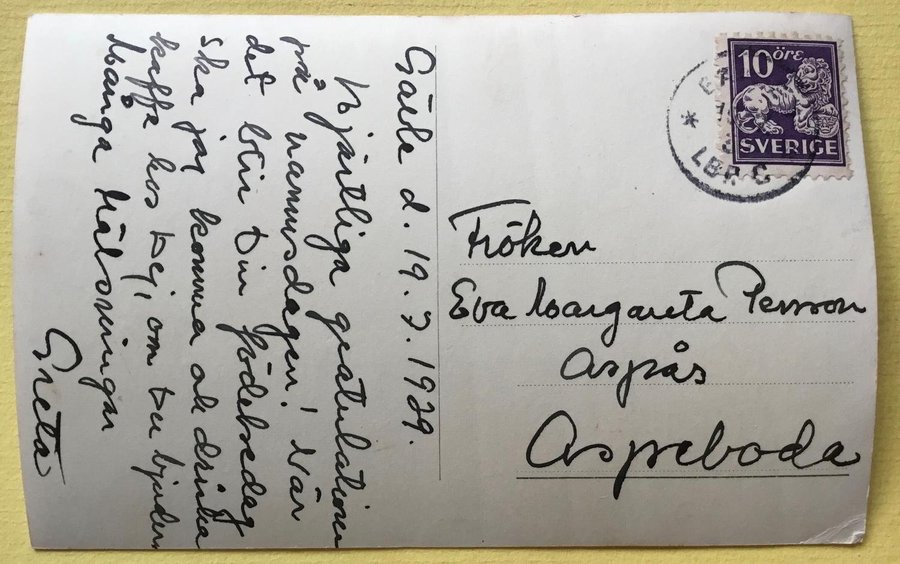 Gävle d. 19.7.1929.
Hjärtliga gratulationer
på namnsdagen! När
det blir Din födelsedag
ska jag komma och dricka
kaffe hos Dej, om Du bjuder
Många hälsningar
Greta
10 ÖRE
SVERIGE
LBR. C
Fröken
Eva Margareta Persson
Aspås
Aspeboda